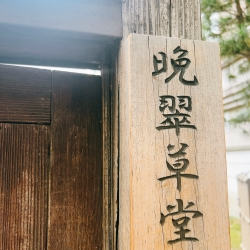 晩翠草堂